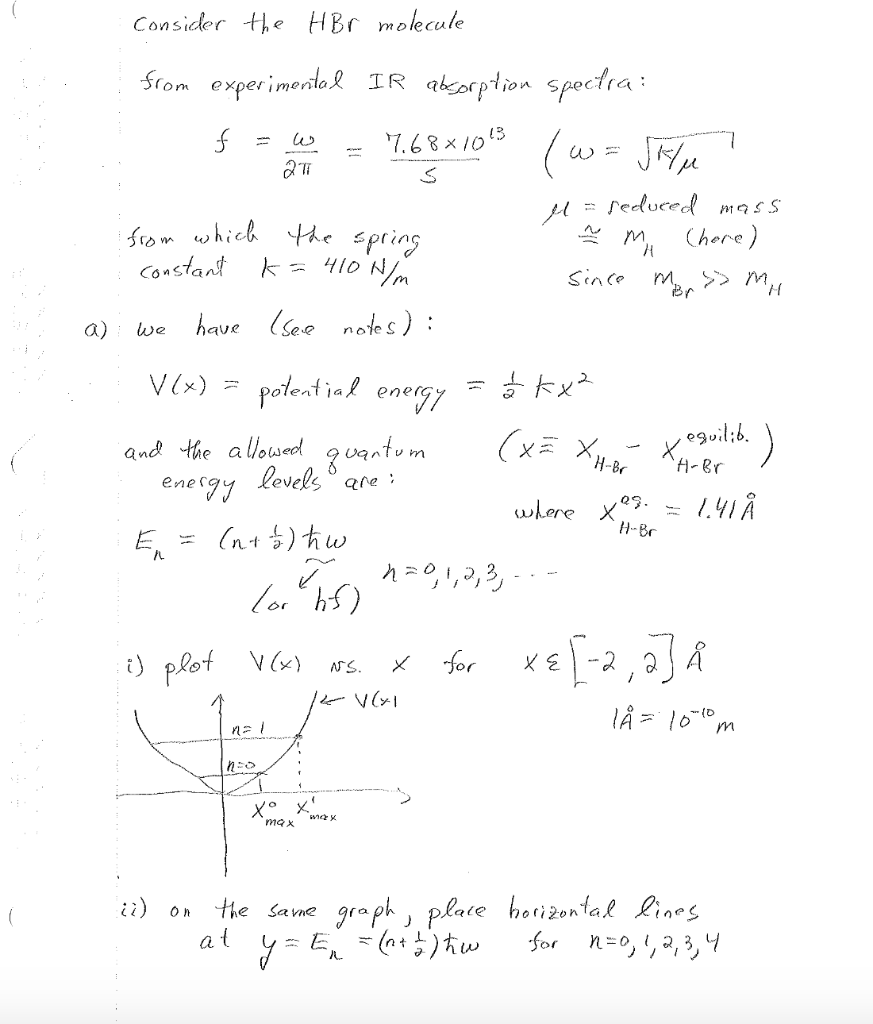 Consider the HBr molecule
from experimental IR absorption spectra:
f = ω/2π = 7.68×10¹³/s (ω = √k/μ)
μ = reduced mass
≅ m_H (here)
since m_Br >> m_H
from which the spring
constant k = 410 N/m
a) we have (see notes):
V(x) = potential energy = ½ kx²
(x ≡ x_H-Br − x_H-Br^equilib.)
where x_H-Br^eq. = 1.41 Å
and the allowed quantum
energy levels are:
E_n = (n+½)ħω
(or hf) n=0,1,2,3,...
i) plot V(x) vs. x for x ε [-2,2] Å
1Å = 10⁻¹⁰ m
← V(x)
n=1
n=0
x⁰_max x¹_max
ii) on the same graph, place horizontal lines
at y = E_n = (n+½)ħω for n=0,1,2,3,4